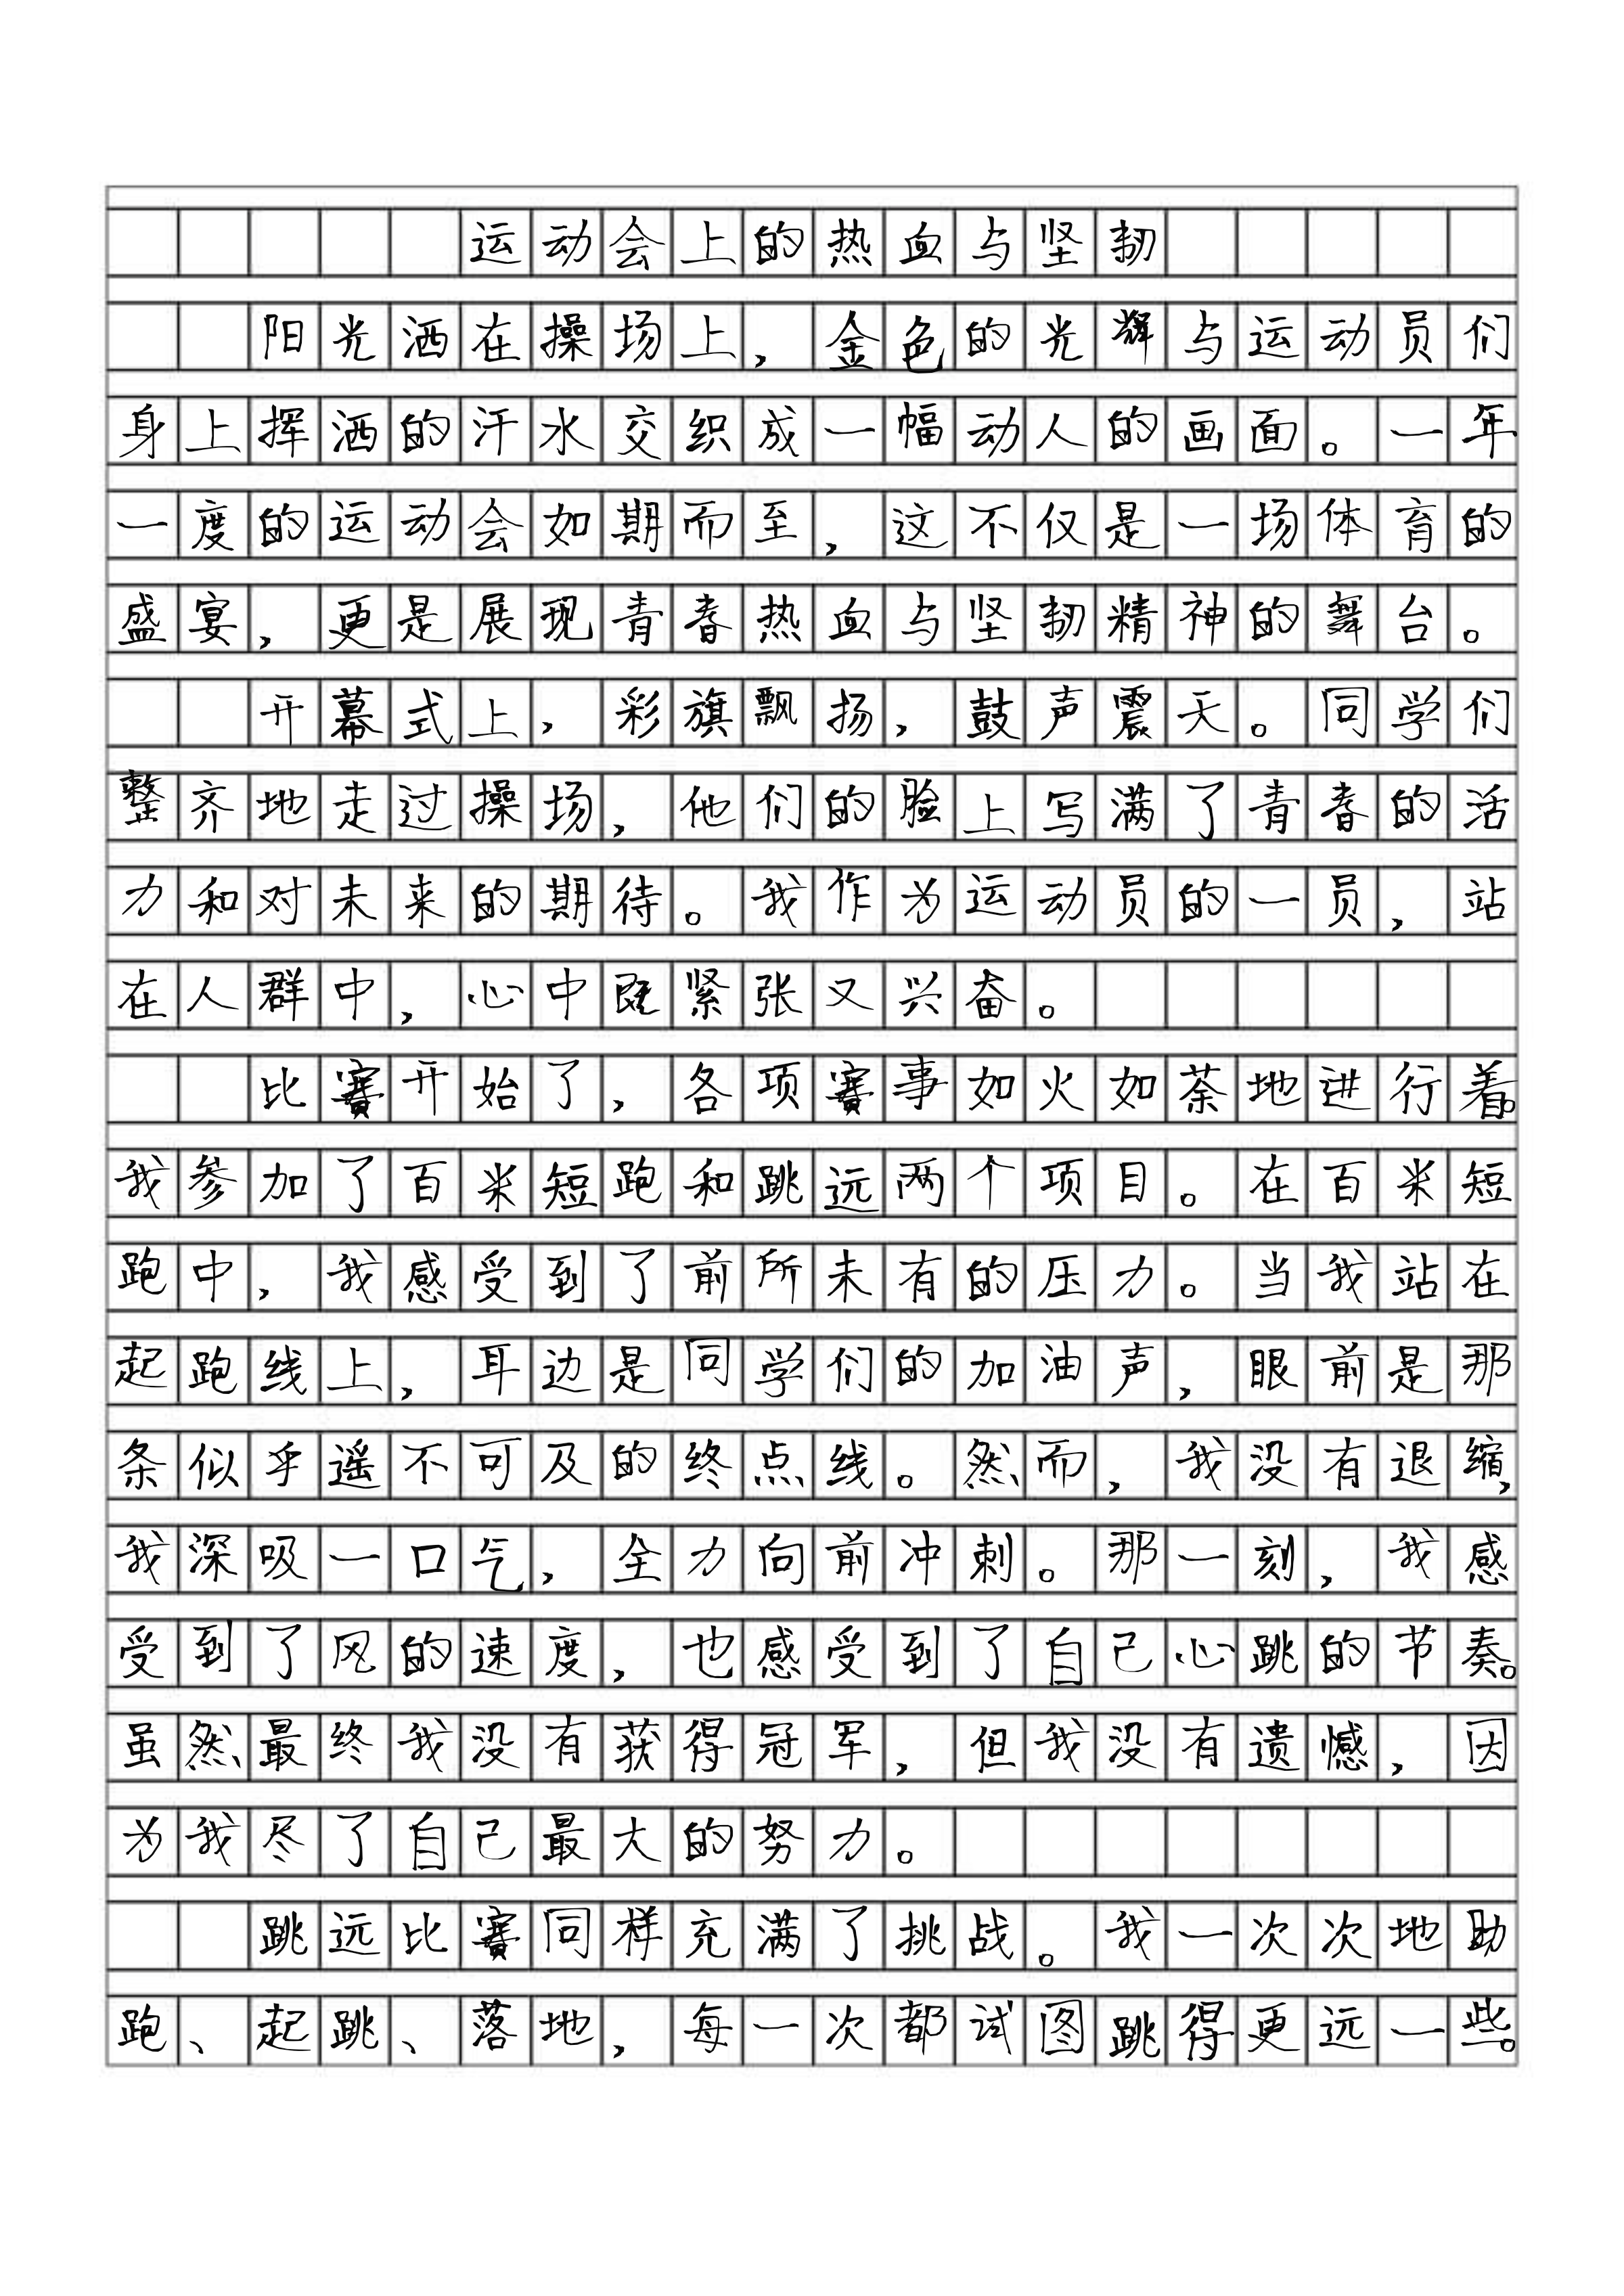 运动会上的热血与坚韧
阳光洒在操场上，金色的光辉与运动员们
身上挥洒的汗水交织成一幅动人的画面。一年
一度的运动会如期而至，这不仅是一场体育的
盛宴，更是展现青春热血与坚韧精神的舞台。
开幕式上，彩旗飘扬，鼓声震天。同学们
整齐地走过操场，他们的脸上写满了青春的活
力和对未来的期待。我作为运动员的一员，站
在人群中，心中既紧张又兴奋。
比赛开始了，各项赛事如火如荼地进行着。
我参加了百米短跑和跳远两个项目。在百米短
跑中，我感受到了前所未有的压力。当我站在
起跑线上，耳边是同学们的加油声，眼前是那
条似乎遥不可及的终点线。然而，我没有退缩，
我深吸一口气，全力向前冲刺。那一刻，我感
受到了风的速度，也感受到了自己心跳的节奏。
虽然最终我没有获得冠军，但我没有遗憾，因
为我尽了自己最大的努力。
跳远比赛同样充满了挑战。我一次次地助
跑、起跳、落地，每一次都试图跳得更远一些。